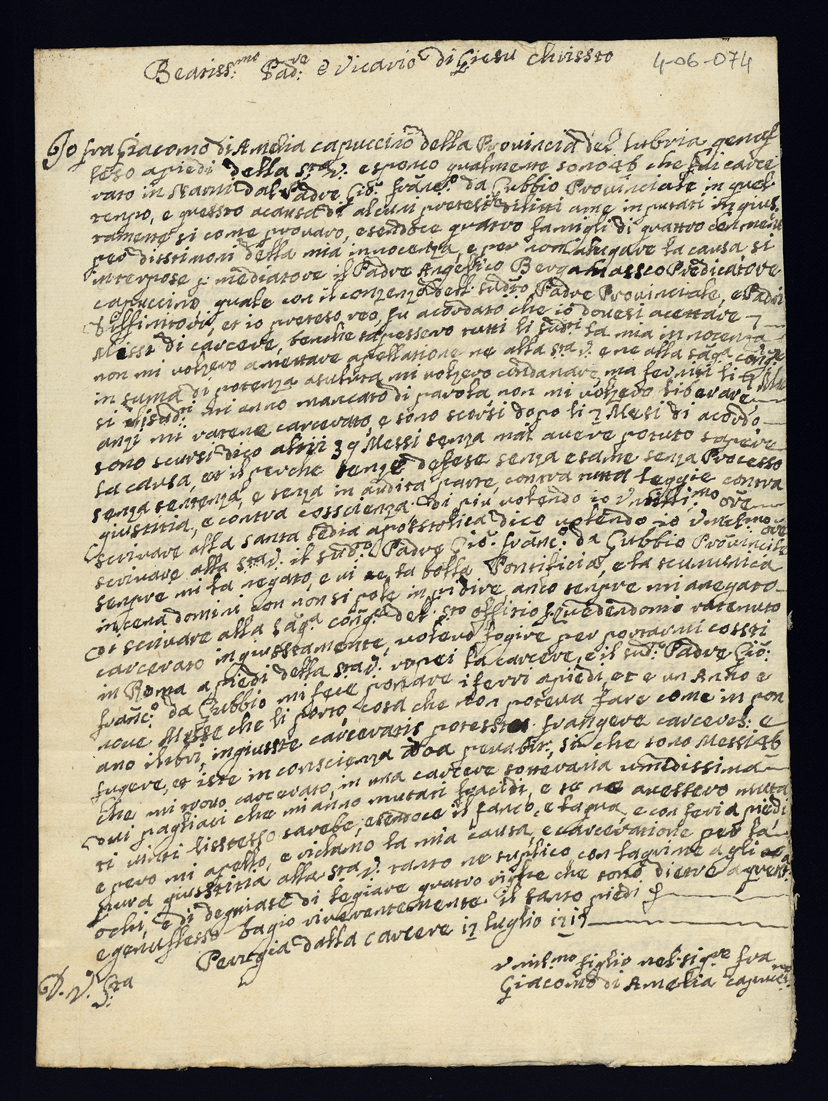 Beatiss:mo Pad:re e Vicario di Giesu Christo
4-06-074
Io fra Giacomo di Amelia capuccino della Provincia del
teso a piedi della Sta V. espongo qualmente sono 46 che fui carce
rato in Narni dal Padre Gio: Franc.o da Gubbio Provinciale in quel
tempo, e questo a causa di alcuni pretesi dilitti a me in putati in gius
tamente si come provaro, esendoce quatro famigli di quatro
per dissimoni della mia innocenza, e per non alugare la causa, si
interpose p mediatore il Padre Angelico Bergamassco Predicatore
capuccino quale con il conzenzo dell sud.o Padre Provinciale, e Padri
Diffinitori, et io preteso reo, fu acordato che io dovesi acettare 7
Messi di carcere, benche sapessero tutti li sud.i la mia innocenza
non mi volzero amettare apellatione ne alla Sta V. e ne alla sag.a cong.e
in suma di potenza asuluta mi volzero condanare, ma feniti li 7
si mi anno mancato di parola non mi volzero liberare
anzi mi ratene carcerato, e sono scorsi dopo li 7 Messi di acordo
sono scorsi dico altri 39 Messi senza mai avere potuto sapere
la causa, et il perche senza defese senza esame senza Processo
senza sentenza, e senza in audita parte, contra tutta leggie contra
giustitia, e contra cosscienza. di più volendo io
scrivare alla santa Sedia apostolica dico volendo io
scrivare alla Sta V. il sud.o Padre Gio: Franc.o da Gubbio Provinciale
senpre mi ha negato, e vi e la bolla Pontificia, e la scumunica
in cena domini non non si pole in pidire, anco senpre mi a negato
di scrivare alla sag.a cong.e del Sto offitio, vedendomo ratenuto
carcerato ingiusstamente, volevo fogire per portarmi cossti
in Roma a piedi della Sta V. rupei la carcere, e il sud.o Padre Gio:
Franc.o da Gubbio mi fece portare i ferri a piedi, et e un Anno e
nove Messe che li porto cosa che non poteva fare come in pon
ano libri, ingiuste carceratis potesst frangere carceres: e
fugere, et iste in conscienza peccabit, si che sono Messi 46
che mi trovo carcerato, in una carcere sotterania umidissima
dui pagliaci che mi anno mutati fracidi, e se ne avessero muta
ti vinti lisstesso sarebe, esendoce il fanco, e laqua, e con feri a piedi
e pero mi apello, e riclamo la mia causa, e carceratione per la
pura giustitia alla Sta V. tanto ne suplico con lagrime agli
ochi, e di degniare di legiare quatro vissre che sono dietro a quest
e genuflesso bagio riverentemente il santo piedi
Perugia dalla carcere 17 luglio 1715
D. V. Sta
Umil.mo figlio nel sig.re fra
Giacomo di Amelia capuci.no